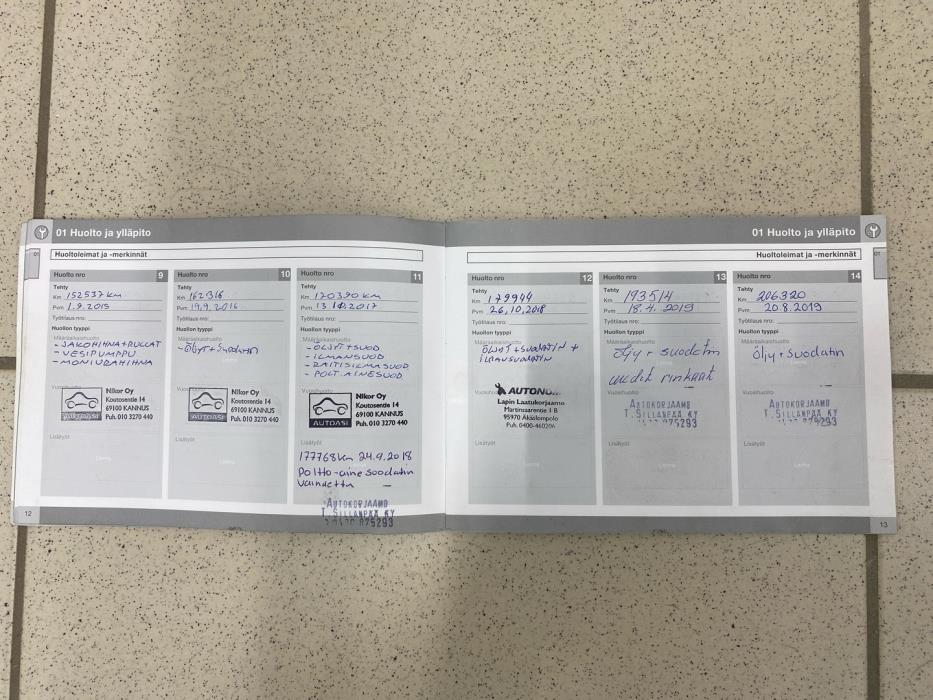 01 Huolto ja ylläpito
01
Huoltoleimat ja -merkinnät
Huolto nro 9
Tehty
Km 152537 km
Pvm 1.9.2015
Työtilaus nro:
Huollon tyyppi
Määräaikaishuolto
- JAKOHIHNA+RULLAT
- VESIPUMPPU
- MONIURAHIHNA
AUTOASI
Nikor Oy
Koutosentie 14
69100 KANNUS
Puh. 010 3270 440
Lisätyöt
Huolto nro 10
Tehty
Km 162316
Pvm 19.9.2016
Työtilaus nro:
Huollon tyyppi
Määräaikaishuolto
- Öljyt+Suodatin
AUTOASI
Nikor Oy
Koutosentie 14
69100 KANNUS
Puh. 010 3270 440
Lisätyöt
Huolto nro 11
Tehty
Km 170390 KM
Pvm 2017
Työtilaus nro:
Huollon tyyppi
Määräaikaishuolto
- ÖLJYT+SUOD
- ILMANSUOD
- RAITISILMASUOD
- POLT.AINESUOD
AUTOASI
Nikor Oy
Koutosentie 14
69100 KANNUS
Puh.010 3270 440
Lisätyöt
177768 km 24.9.2018
Poltto-aine suodatin
vaihdettu
AUTOKORJAAMO
T. SILLANPÄÄ KY
875293
12
01 Huolto ja ylläpito
01
Huoltoleimat ja -merkinnät
Huolto nro 12
Tehty
Km 179944
Pvm 26.10.2018
Työtilaus nro:
Huollon tyyppi
Määräaikaishuolto
ÖLJYT+SUODATIN +
ILMASUODATIN
Lapin Laatukorjaamo
Martinsaarentie 1 B
95970 Äkäslompolo
Puh. 0400-460206
Lisätyöt
Huolto nro 13
Tehty
Km 193514
Pvm 18.4.2019
Työtilaus nro:
Huollon tyyppi
Määräaikaishuolto
öljy + suodatin
uudet renkaat
AUTOKORJAAMO
T. SILLANPÄÄ KY
875293
Lisätyöt
Huolto nro 14
Tehty
Km 206320
Pvm 20.8.2019
Työtilaus nro:
Huollon tyyppi
Määräaikaishuolto
öljy + suodatin
AUTOKORJAAMO
T. SILLANPÄÄ KY
875293
Lisätyöt
13